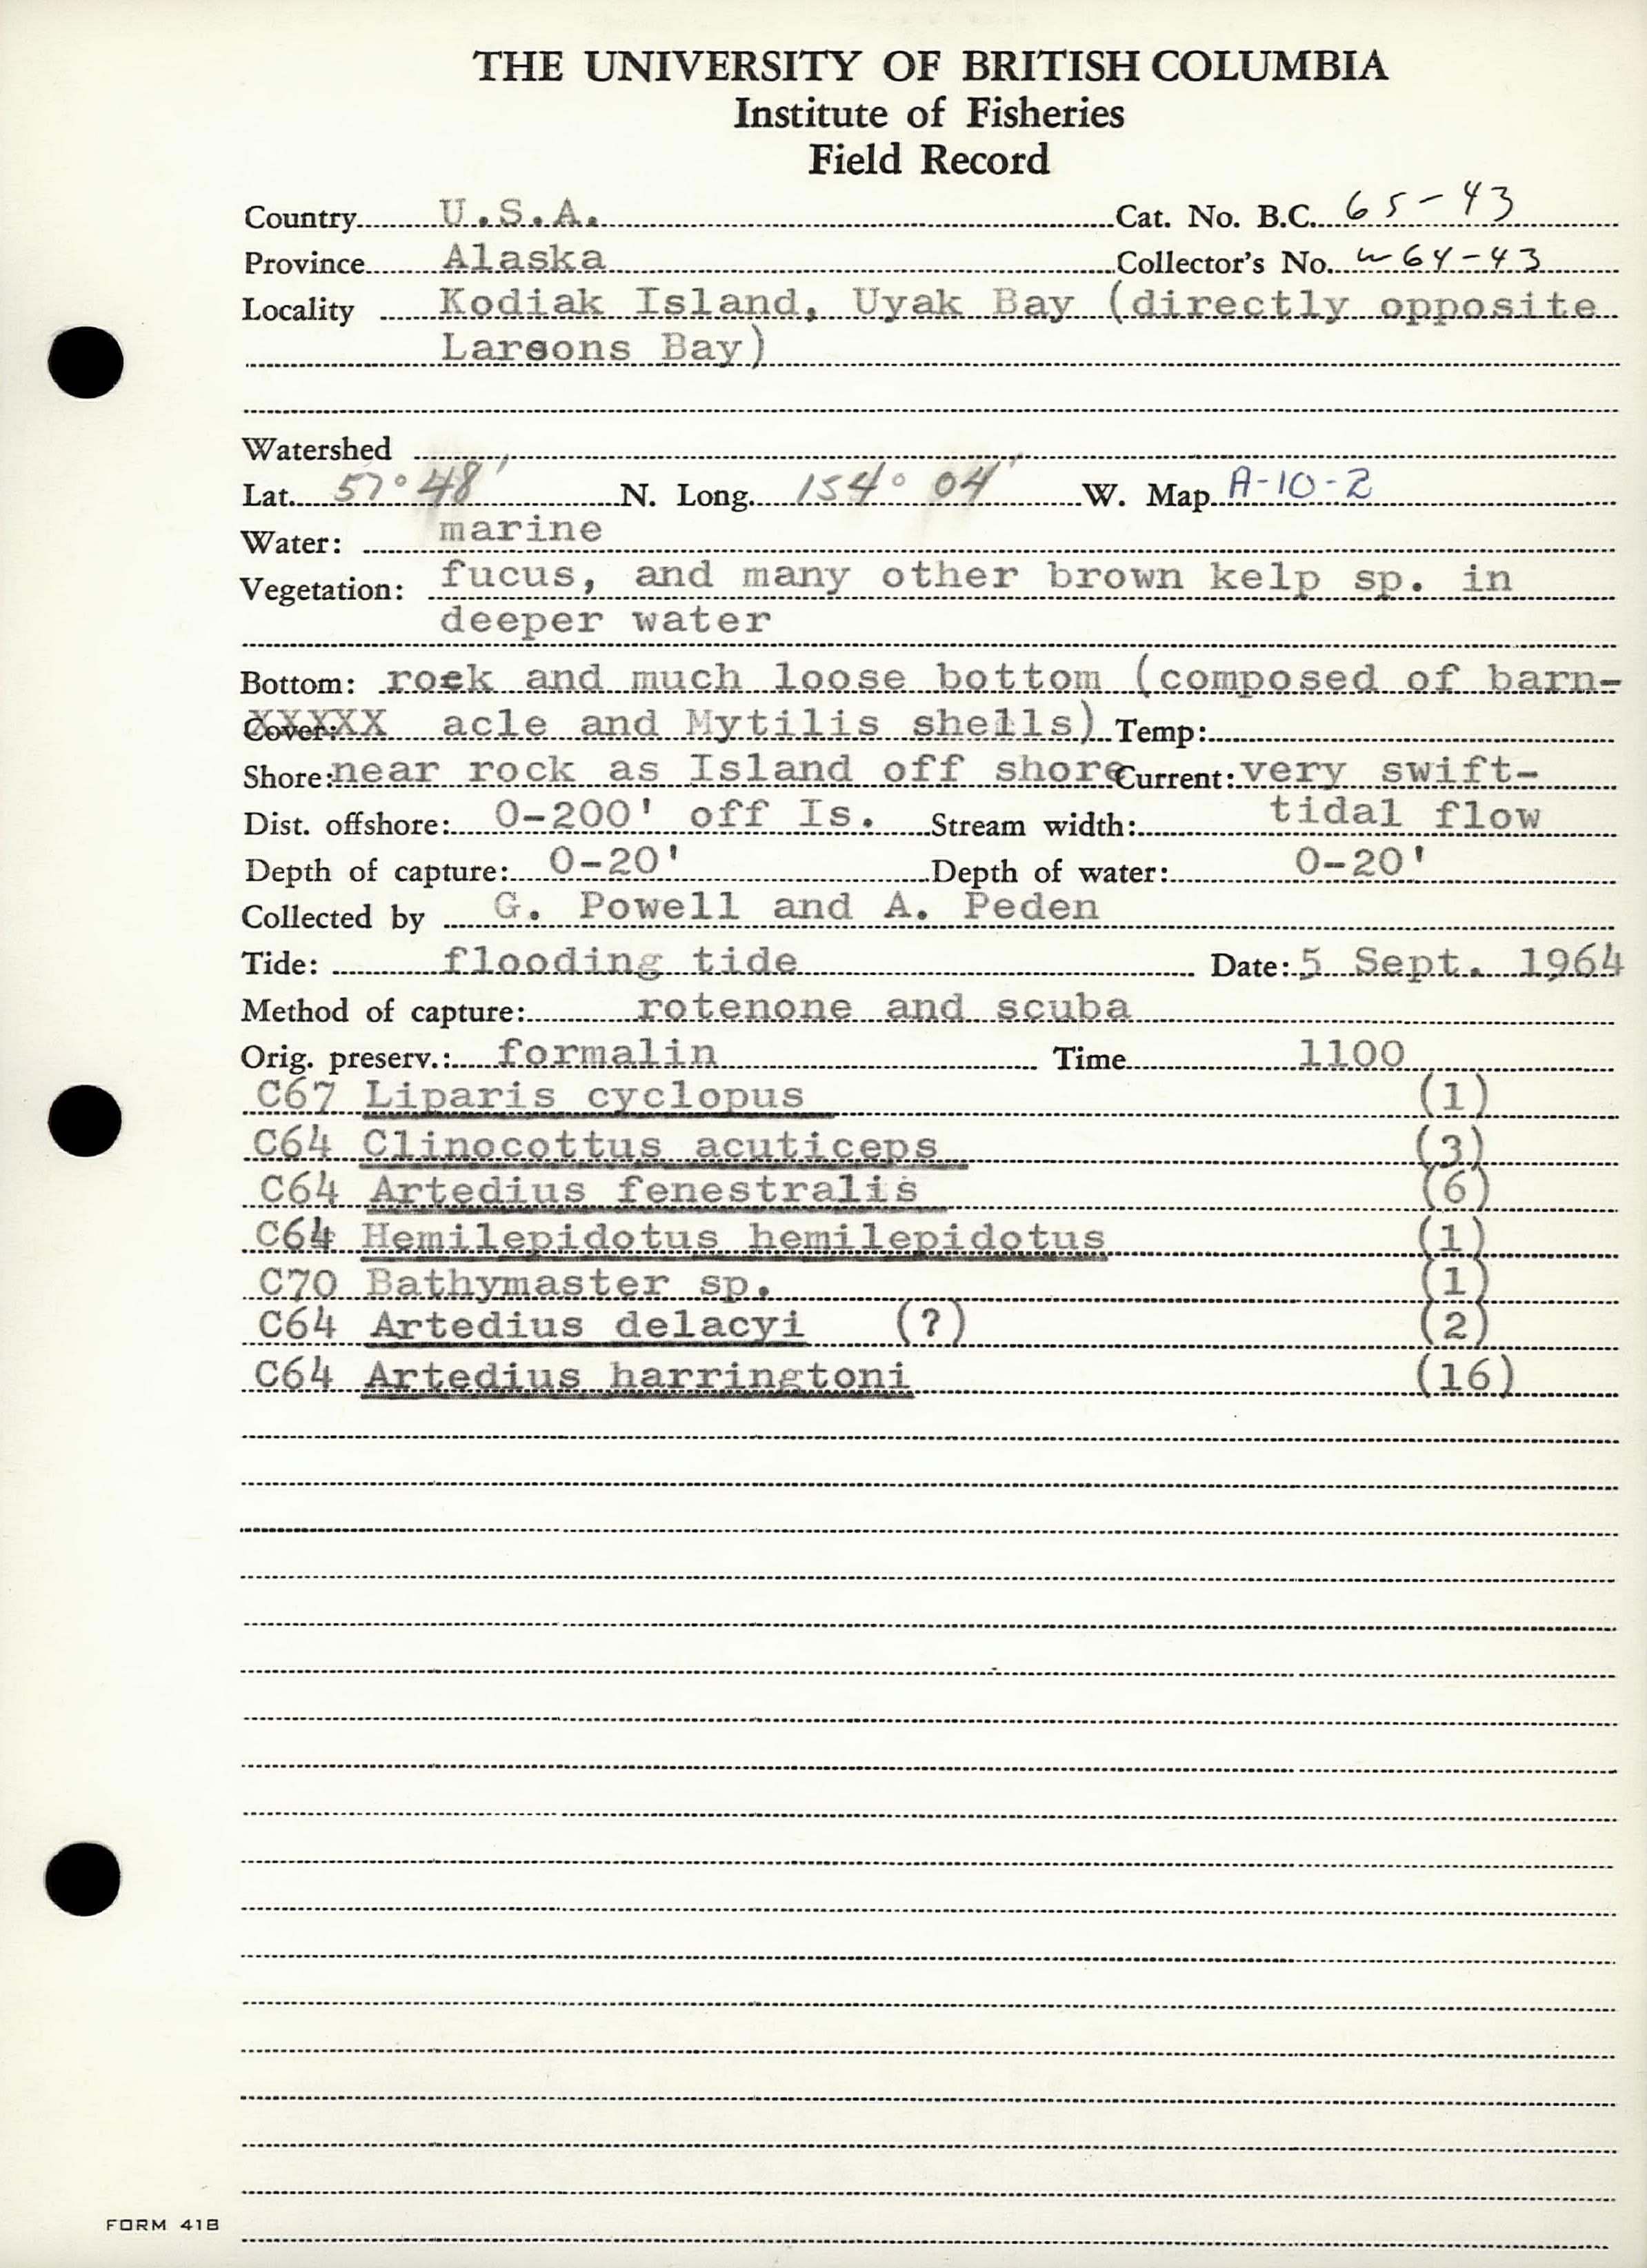 THE UNIVERSITY OF BRITISH COLUMBIA
Institute of Fisheries
Field Record
Country U.S.A. Cat. No. B.C. 65-43
Province Alaska Collector's No. w64-43
Locality Kodiak Island, Uyak Bay (directly opposite
Larsons Bay)
Watershed
Lat. 57° 48' N. Long. 154° 04' W. Map A-10-2
Water: marine
Vegetation: fucus, and many other brown kelp sp. in
deeper water
Bottom: rock and much loose bottom (composed of barn-
Cover: XXXXX acle and Mytilis shells) Temp:
Shore: near rock as Island off shore Current: very swift-
Dist. offshore: 0-200' off Is. Stream width: tidal flow
Depth of capture: 0-20' Depth of water: 0-20'
Collected by G. Powell and A. Peden
Tide: flooding tide Date: 5 Sept. 1964
Method of capture: rotenone and scuba
Orig. preserv.: formalin Time 1100
C67 Liparis cyclopus (1)
C64 Clinocottus acuticeps (3)
C64 Artedius fenestralis (6)
C64 Hemilepidotus hemilepidotus (1)
C70 Bathymaster sp. (1)
C64 Artedius delacyi (?) (2)
C64 Artedius harringtoni (16)
FORM 41B